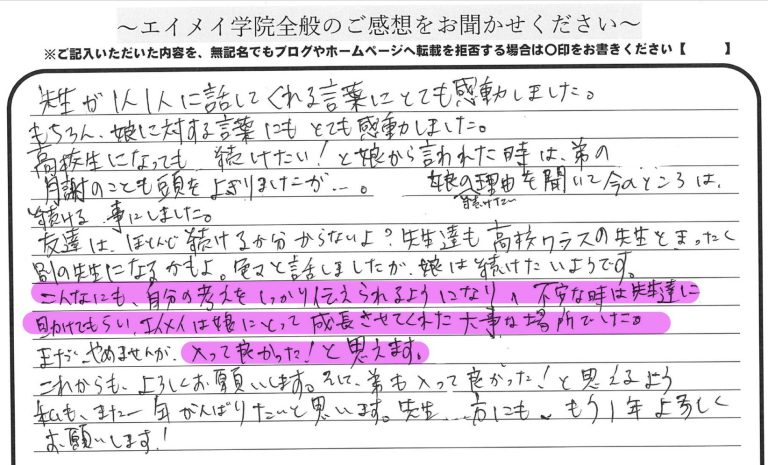 ～エイメイ学院全般のご感想をお聞かせください～
※ご記入いただいた内容を、無記名でもブログやホームページへ転載を拒否する場合は〇印をお書きください【　　】
先生が1人1人に話してくれる言葉にとても感動しました。
もちろん、娘に対する言葉にもとても感動しました。
高校生になっても 続けたい！と娘から言われた時は、弟の
月謝のことも頭をよぎりましたが…。 娘の続けたい理由を聞いて今のところは、
続ける事にしました。
友達は、ほとんど続けるか分からないよ？先生達も高校クラスの先生とまったく
別の先生になるかもよ。色々と話しましたが、娘は続けたいようです。
こんなにも、自分の考えをしっかり伝えられるようになり、不安な時は先生達に
助けてもらい、エイメイは娘にとって成長させてくれた大事な場所でした。
まだ、やめませんが、入って良かった！と思えます。
これからも、よろしくお願いします。そして、弟も入って良かった！と思えるよう
私も、また一年がんばりたいと思います。先生方にも、もう1年よろしく
お願いします！